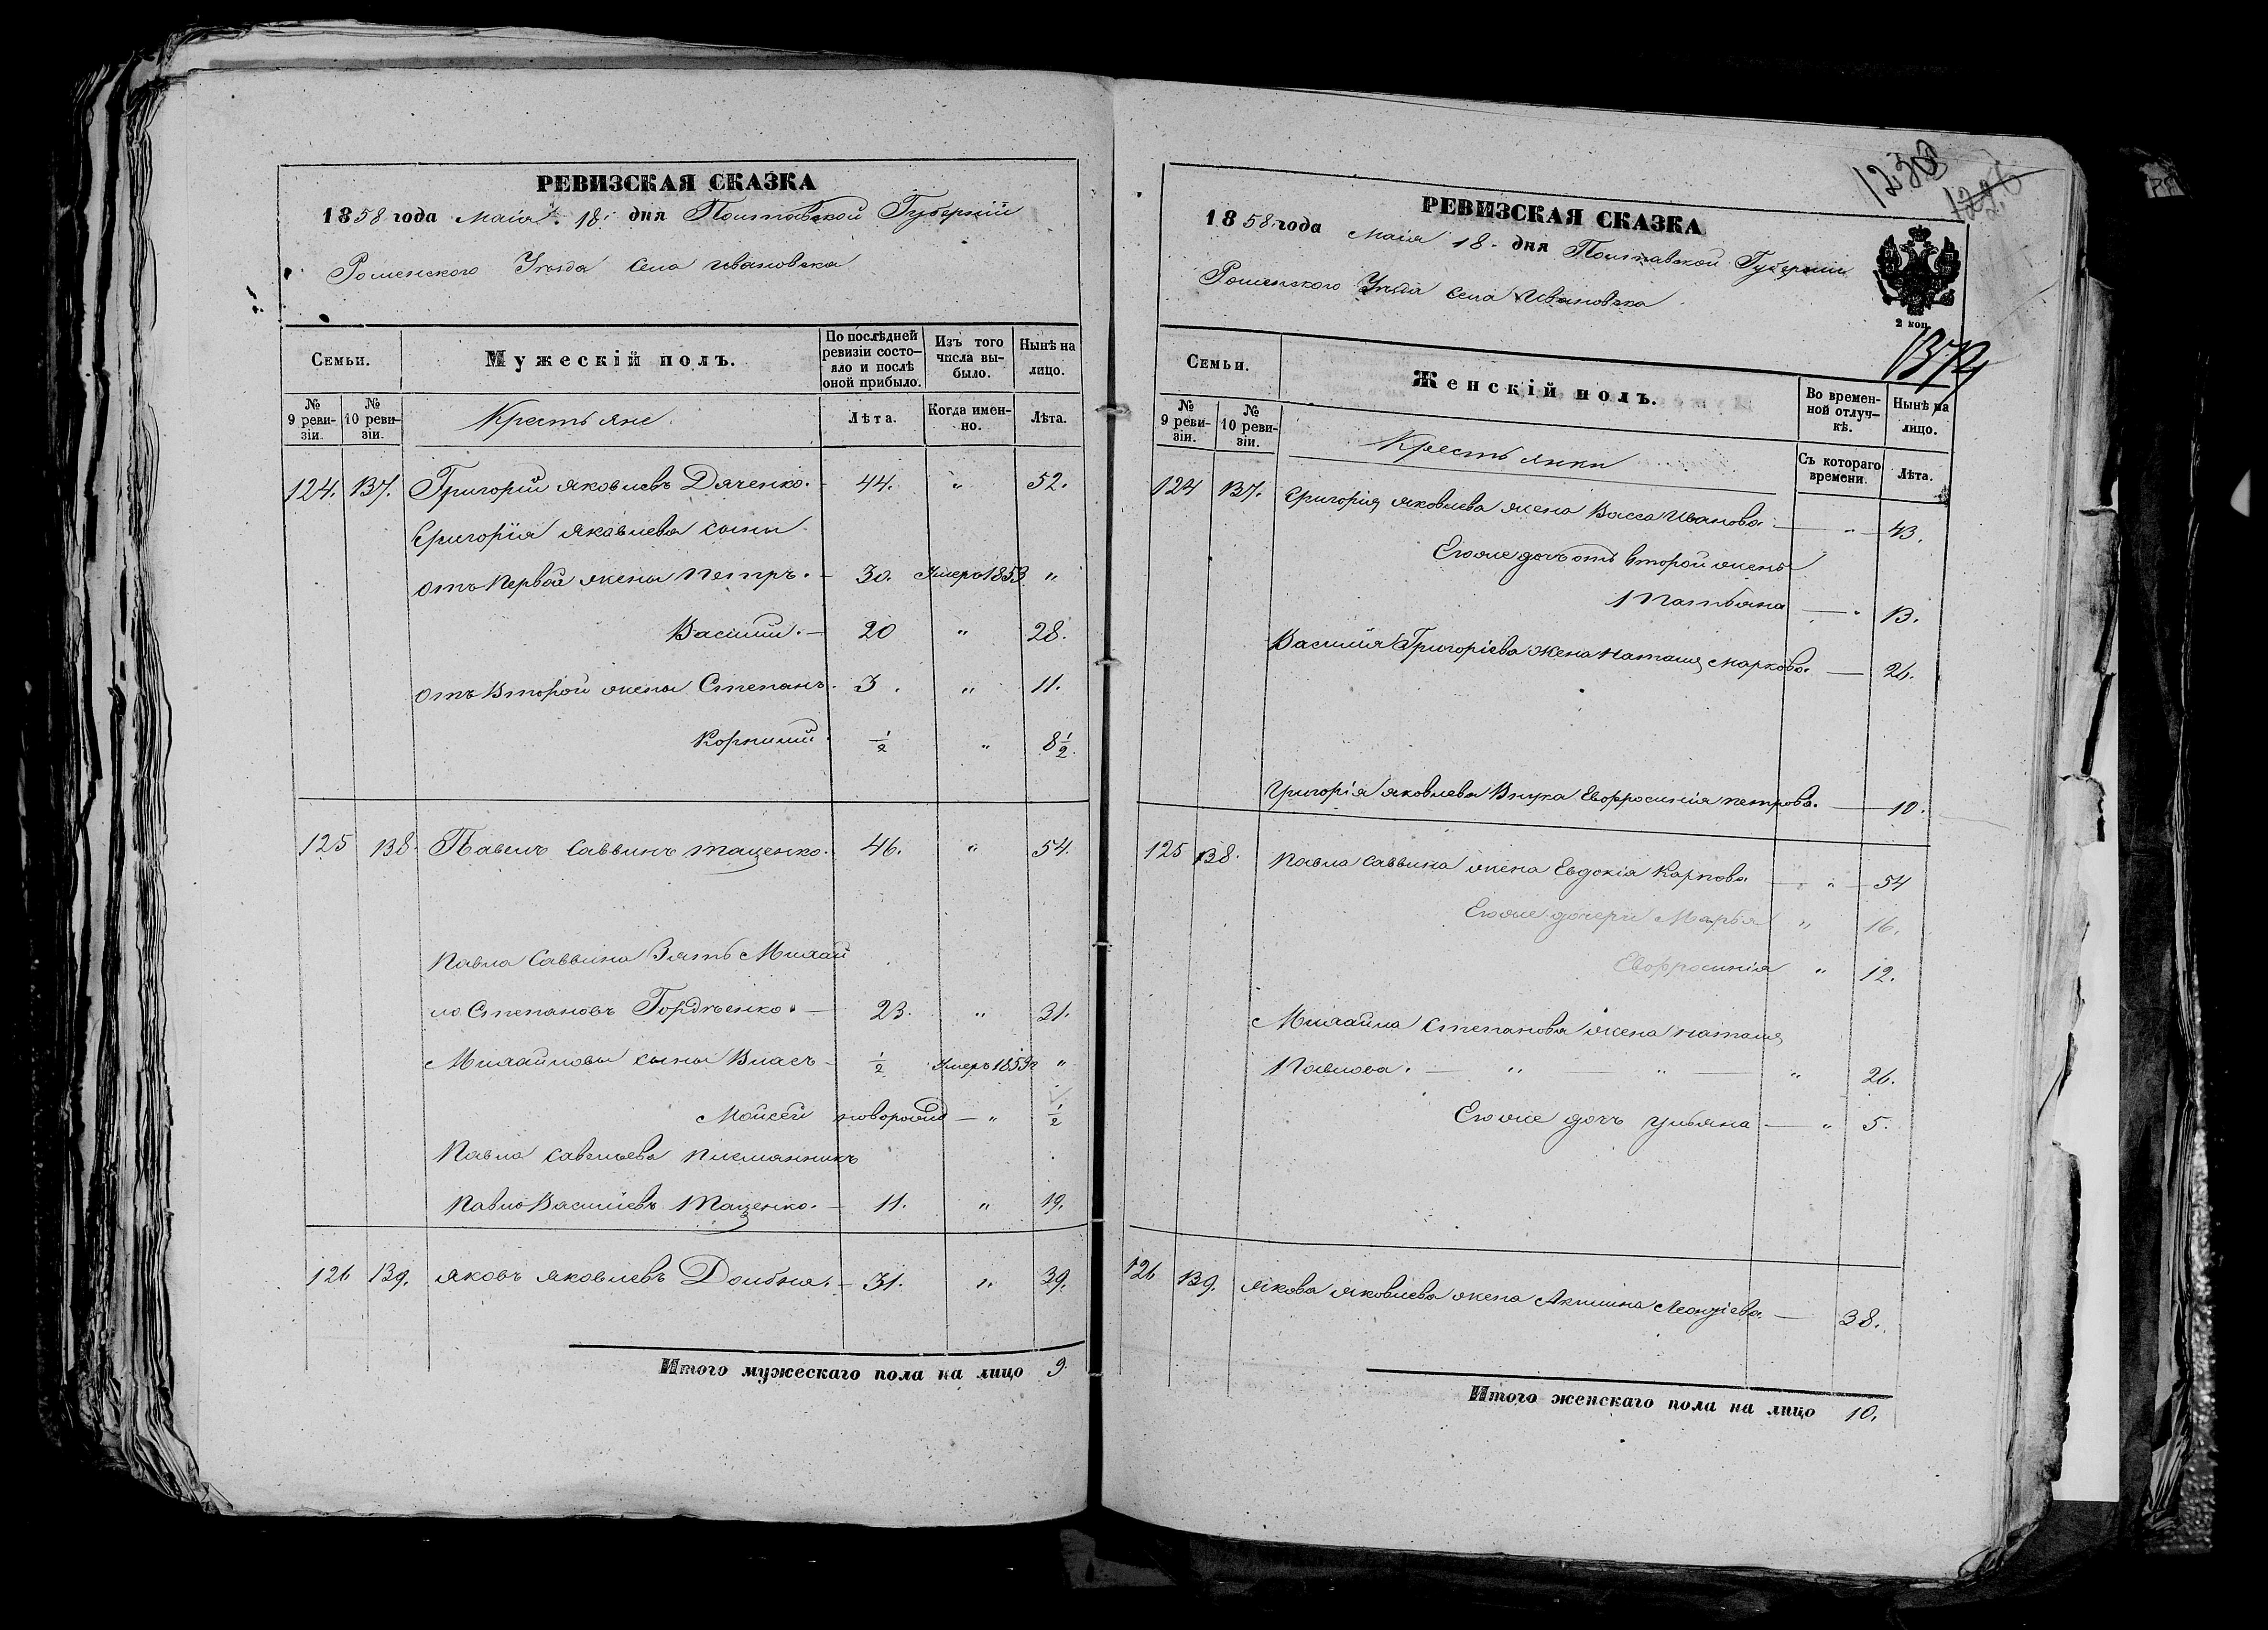 РЕВИЗСКАЯ СКАЗКА
1858 года Маія 18 дня Полтавской Губерніи
Роменского Уезда села Ивановка
Семьи.
Мужескій полъ.
По послѣдней ревизіи состояло и послѣ оной прибыло.
Изъ того числа выбыло.
Нынѣ на лицо.
№ 9 ревизіи.
№ 10 ревизіи.
Крестьяне.
Лѣта.
Когда именно.
Лѣта.
124. 137. Григорій Яковлевъ Дяченко. 44. " 52.
Григорія Яковлева сыны
отъ Первой жены Петръ. 30. Умеръ 1853 "
Василий. 20 " 28.
отъ Второй жены Степанъ. 3. " 11.
Корнилий 1/2 " 8 1/2.
125 138. Павелъ Саввинъ Таценко. 46. " 54.
Павла Саввина Зять Михай
ло Степановъ Гордѣенко. 23. " 31.
Михайловы сыны Власъ 1/2 Умеръ 1853 "
Мойсей новорожд — " 1/2
Павла Савельева племянникъ
Павло Василіевъ Таценко. 11. " 19.
126 139. Яковъ Яковлевъ Долбня. 31. " 39.
Итого мужескаго пола на лицо 9.
1230
1226
РЕВИЗСКАЯ СКАЗКА
1858 года Маія 18 дня Полтавской Губерніи
Роменского Уезда села Ивановка
2 коп.
1374
Семьи.
Женскій полъ.
Во временной отлучкѣ.
Нынѣ на лицо.
№ 9 ревизіи.
№ 10 ревизіи.
Крестьянки
Съ котораго времени.
Лѣта.
124 137. Григорія Яковлева жена Васса Иванова — " 43.
Егоже дочь отъ второй жены
Татьяна — " 13.
Василія Григоріева жена Наталія Маркова. — 26.
Григорія Яковлева Внука Евфросинія Петрова. — 10.
125 138. Павла Саввина жена Евдокія Карпова — " — 54
Егоже дочери Марья " 16.
Евфросинія " 12.
Михайла Степанова жена Наталія
Павлова. — " — " — " 26.
Егоже дочь Ульяна — " 5.
126 139. Якова Яковлева жена Акилина Леонтіева. — 38.
Итого женскаго пола на лицо 10.